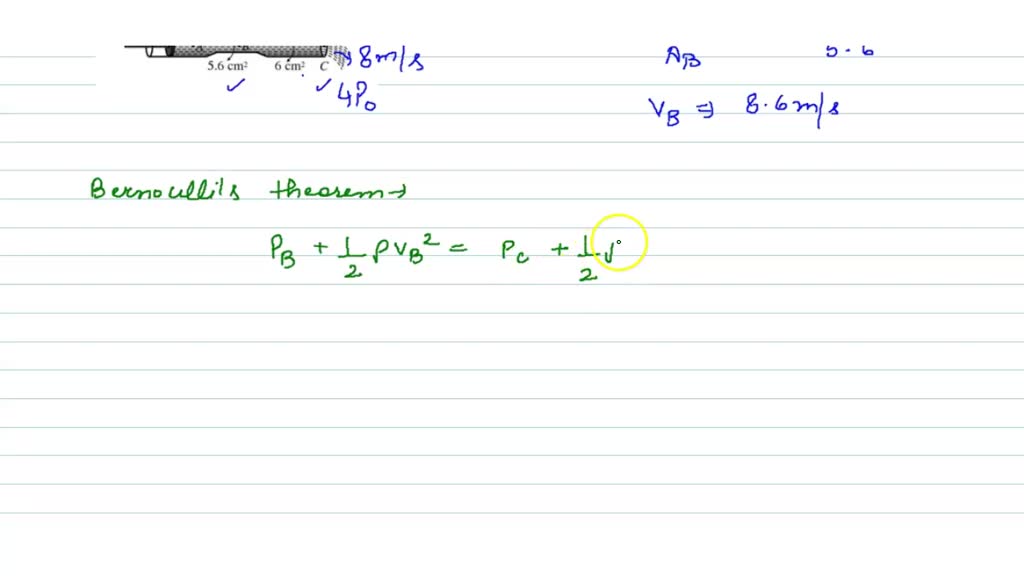 → 8m/s
5.6 cm² 6 cm² C
4P₀
A_B 5.6
V_B ⇒ 8.6 m/s
Bernoullils theorem→
P_B + 1/2 ρV_B² = P_C + 1/2